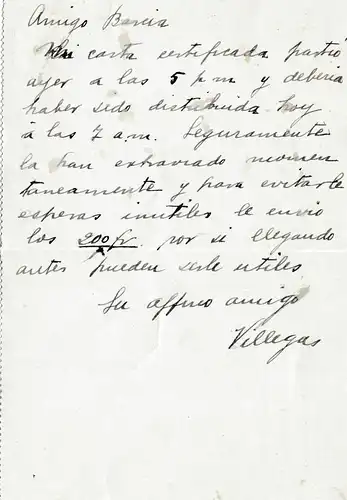 Amigo Barcia
Mi carta certificada partió
ayer a las 5 p m y deberia
haber sido distribuida hoy
á las 7 a.m. Seguramente
la han extraviado momen
taneamente y para evitarle
esperas inutiles le envio
los 200 fr. por si llegando
antes pueden serle utiles
Su affmo amigo
Villegas